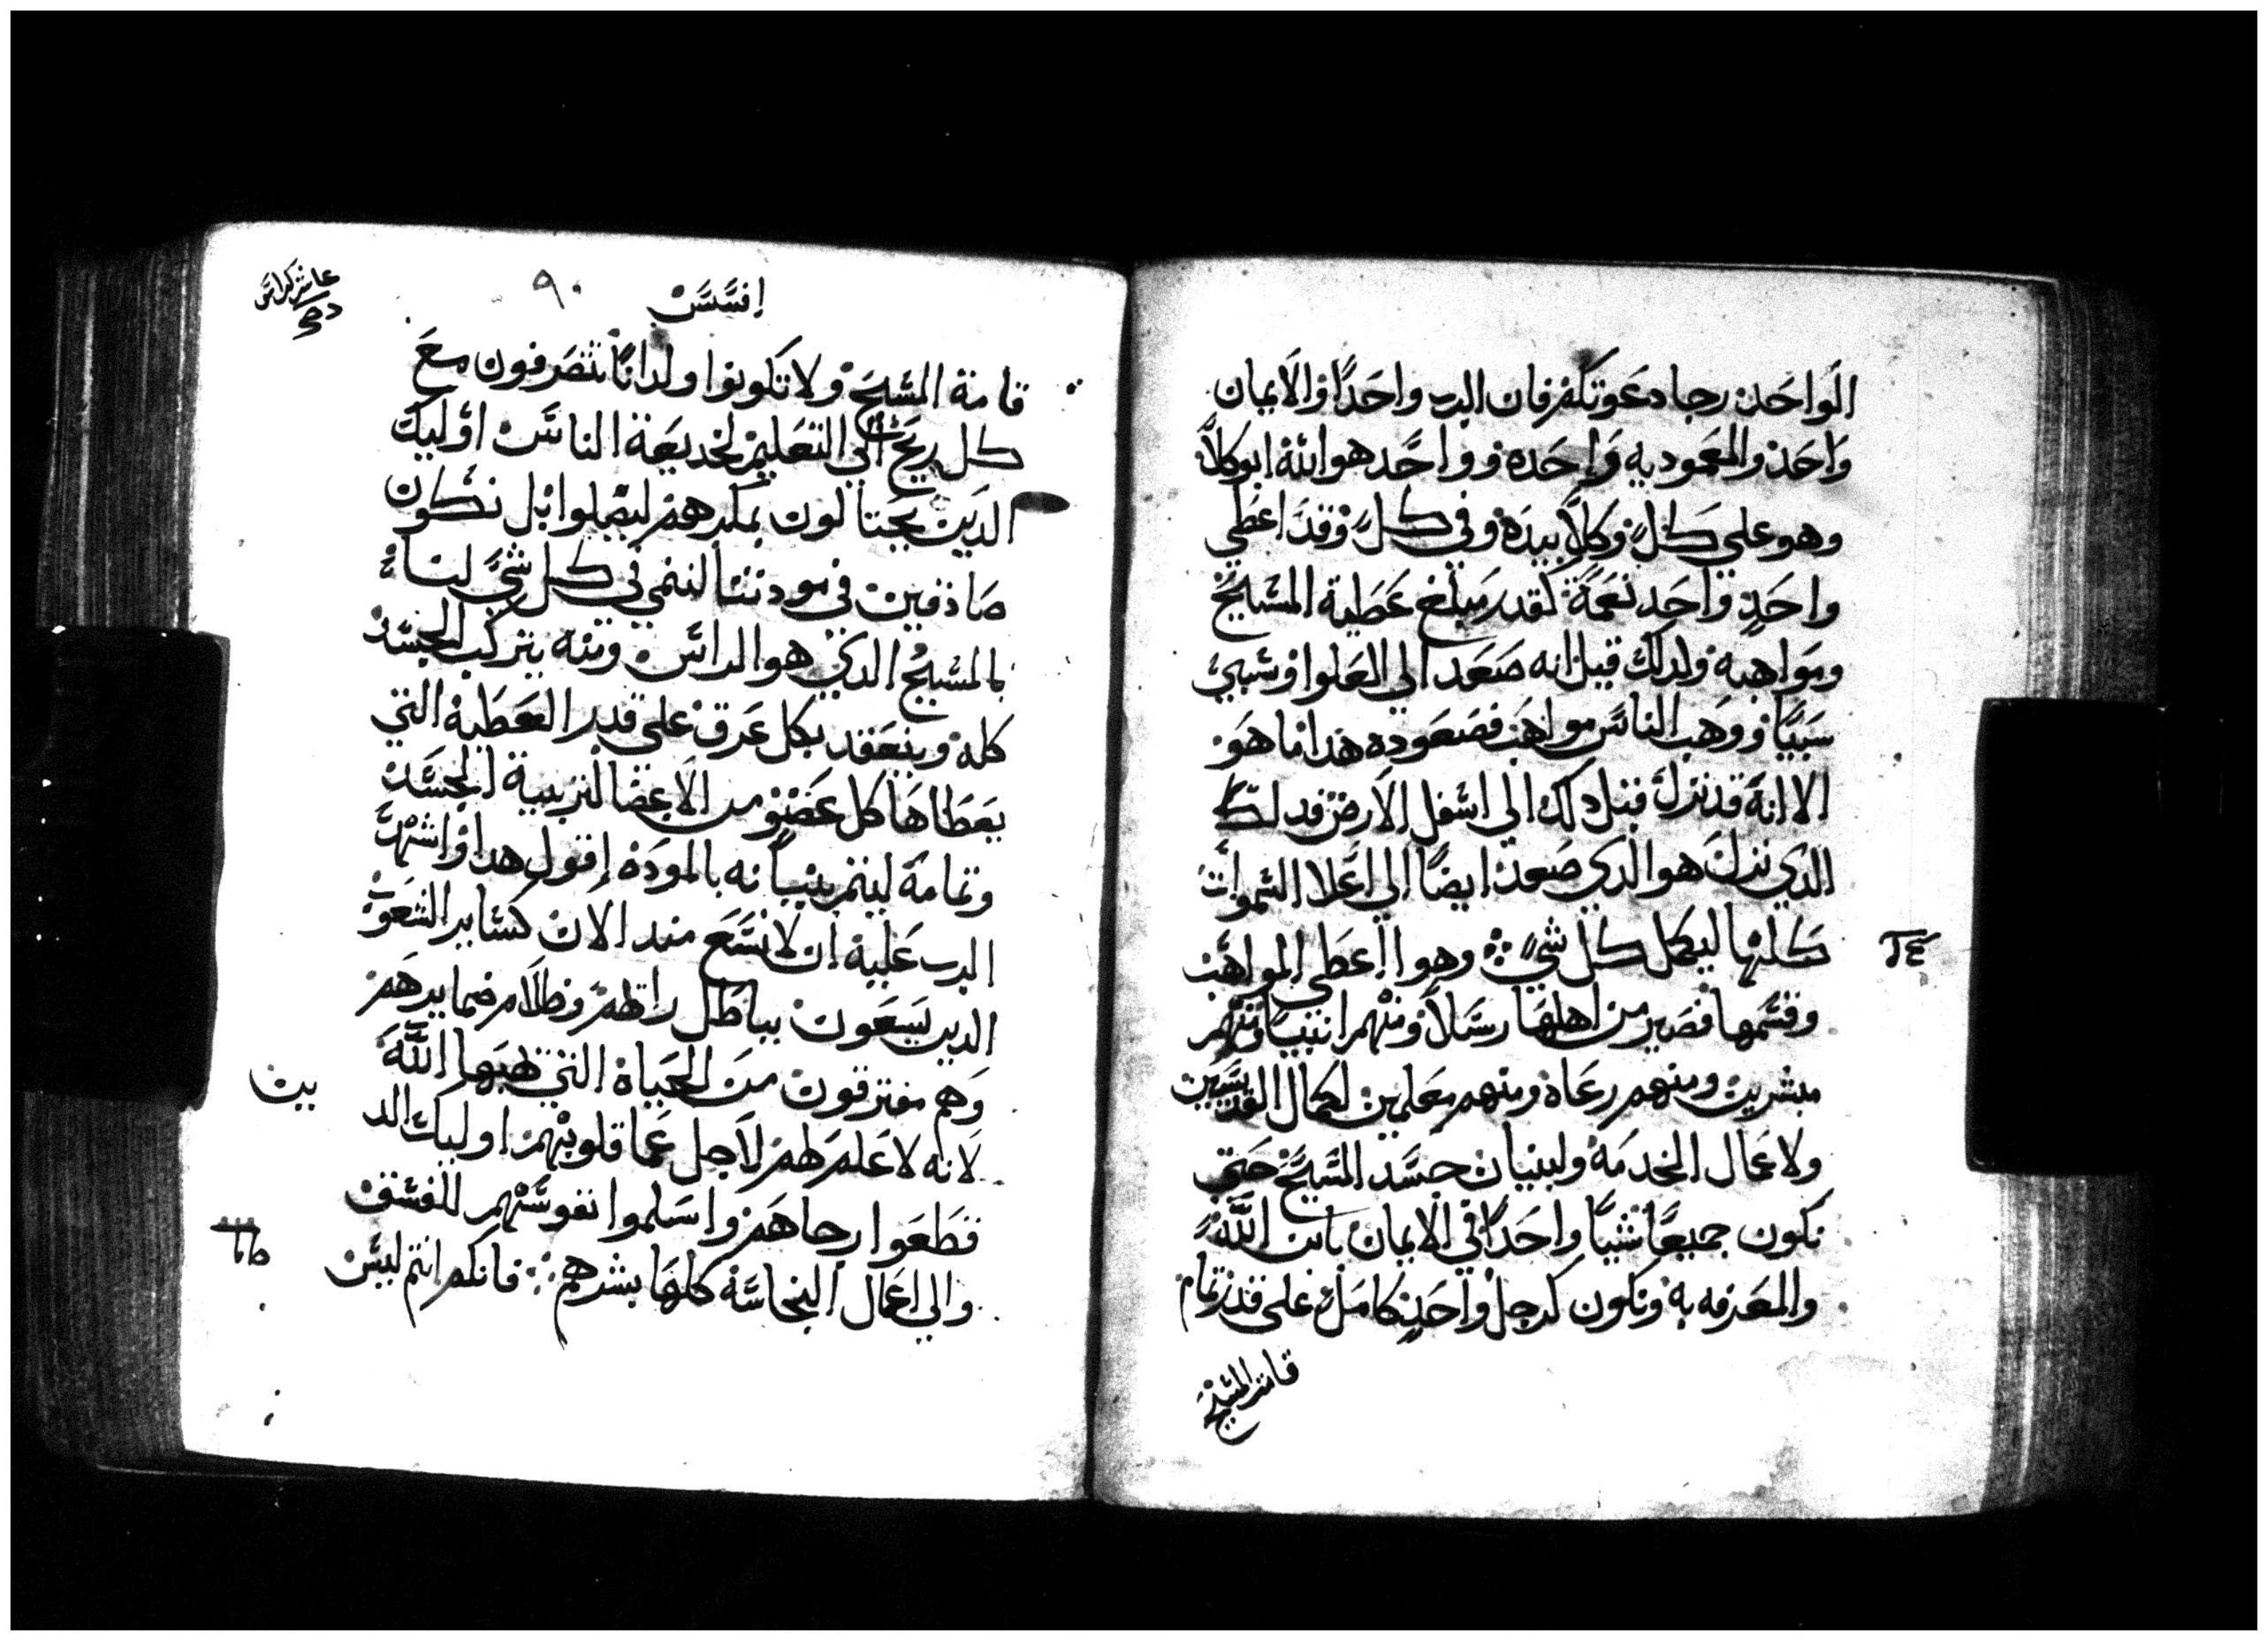 الواحد رجا دعوتكم فان الرب واحدا والايمان
واحد والمعموديه واحده وواحد هو الله ابو كلا
وهو على كل وكلا بيده وفي كل وقد اعطي
واحد واحد نعمة كقدر مبلغ عطية المسيح
ومواهبه ولدلك قيل انه صعد الي العلوا وسبي
سبيا ووهب الناس مواهب فصعوده هدا ما هو
الا انه قد نزل قبل دلك الي اسفل الارض فدلك
الدي نزل هو الدي صعد ايضا الي اعلا السموات
كلها ليكمل كل شي وهوا اعطي المواهب
٢٤
وقسمها فصير من اهلها رسلا ومنهم انبيا ومنهم
مبشرين ومنهم رعاه ومنهم معلمين لكمال القديسين
ولاعمال الخدمة ولبنيان جسد المسيح حتى
نكون جميعا شيا واحدا في الايمان بابن الله
والمعرفه به ونكون كرجل واحد كامل على قدر تمام
قامة المسيح
افسس
٩٠
عاشر كراس
قامة المسيح ولا تكونوا ولدانا تتصرفون مع
كل ريح الي التعليم لخديعة الناس اوليك
الدين يحتالون بمكرهم ليضلوا بل نكون
صادقين في مودتنا لننمي في كل شي لنا
بالمسيح الدي هو الراس ومنه يتركب الجسد
كله وينعقد بكل عرق على قدر العطية التي
يعطاها كل عضو من الاعضا لتربية الجسد
وتمامة ليتم بنيانه بالمودة اقول هدا واشهد
الرب عليه ان لا نسع مند الان كساير الشعوب
الدين يسعون بباطل راتهم وظلام ضمايرهم
وهم مفترقون من الحياة التي يهبها الله
لانه لا علم لهم لاجل عما قلوبهم اوليك الد
ين
قطعوا رجاهم واسلموا نفوسهم للفسق
والي اعمال النجاسة كلها بشرههم فانكم انتم ليس